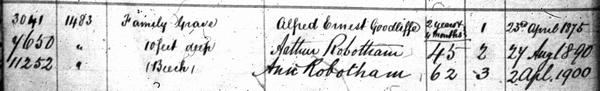 3041 1483 Family Grave Alfred Ernest Goodliffe 2 years & 4 months 1 23rd April 1875
7650 " 10 feet deep Arthur Robotham 45 2 27 Augt 1890
11252 " (Beech) Ann Robotham 62 3 2 Apl. 1900